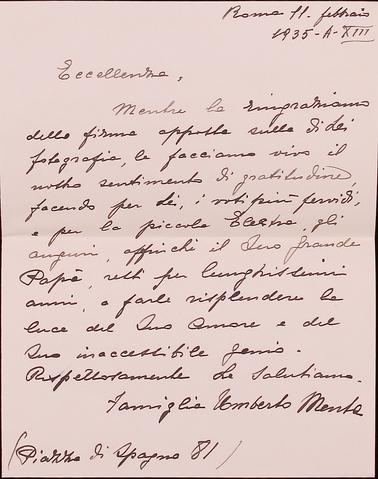 Roma 11. febbraio
1935-A-XIII
Eccellenza,
Mentre la ringraziamo
della firma apposta sulla di Lei
fotografia, le facciamo vivo il
nostro sentimento di gratitudine,
facendo per Lei, i voti più fervidi,
e per la piccola Elettra, gli
auguri, affinchè il Suo grande
Papà, resti per lunghissimi
anni, a farle risplendere la
luce del Suo Amore e del
Suo inaccessibile genio.
Rispettosamente La salutiamo.
Famiglia Umberto
(Piazza di Spagna 81)